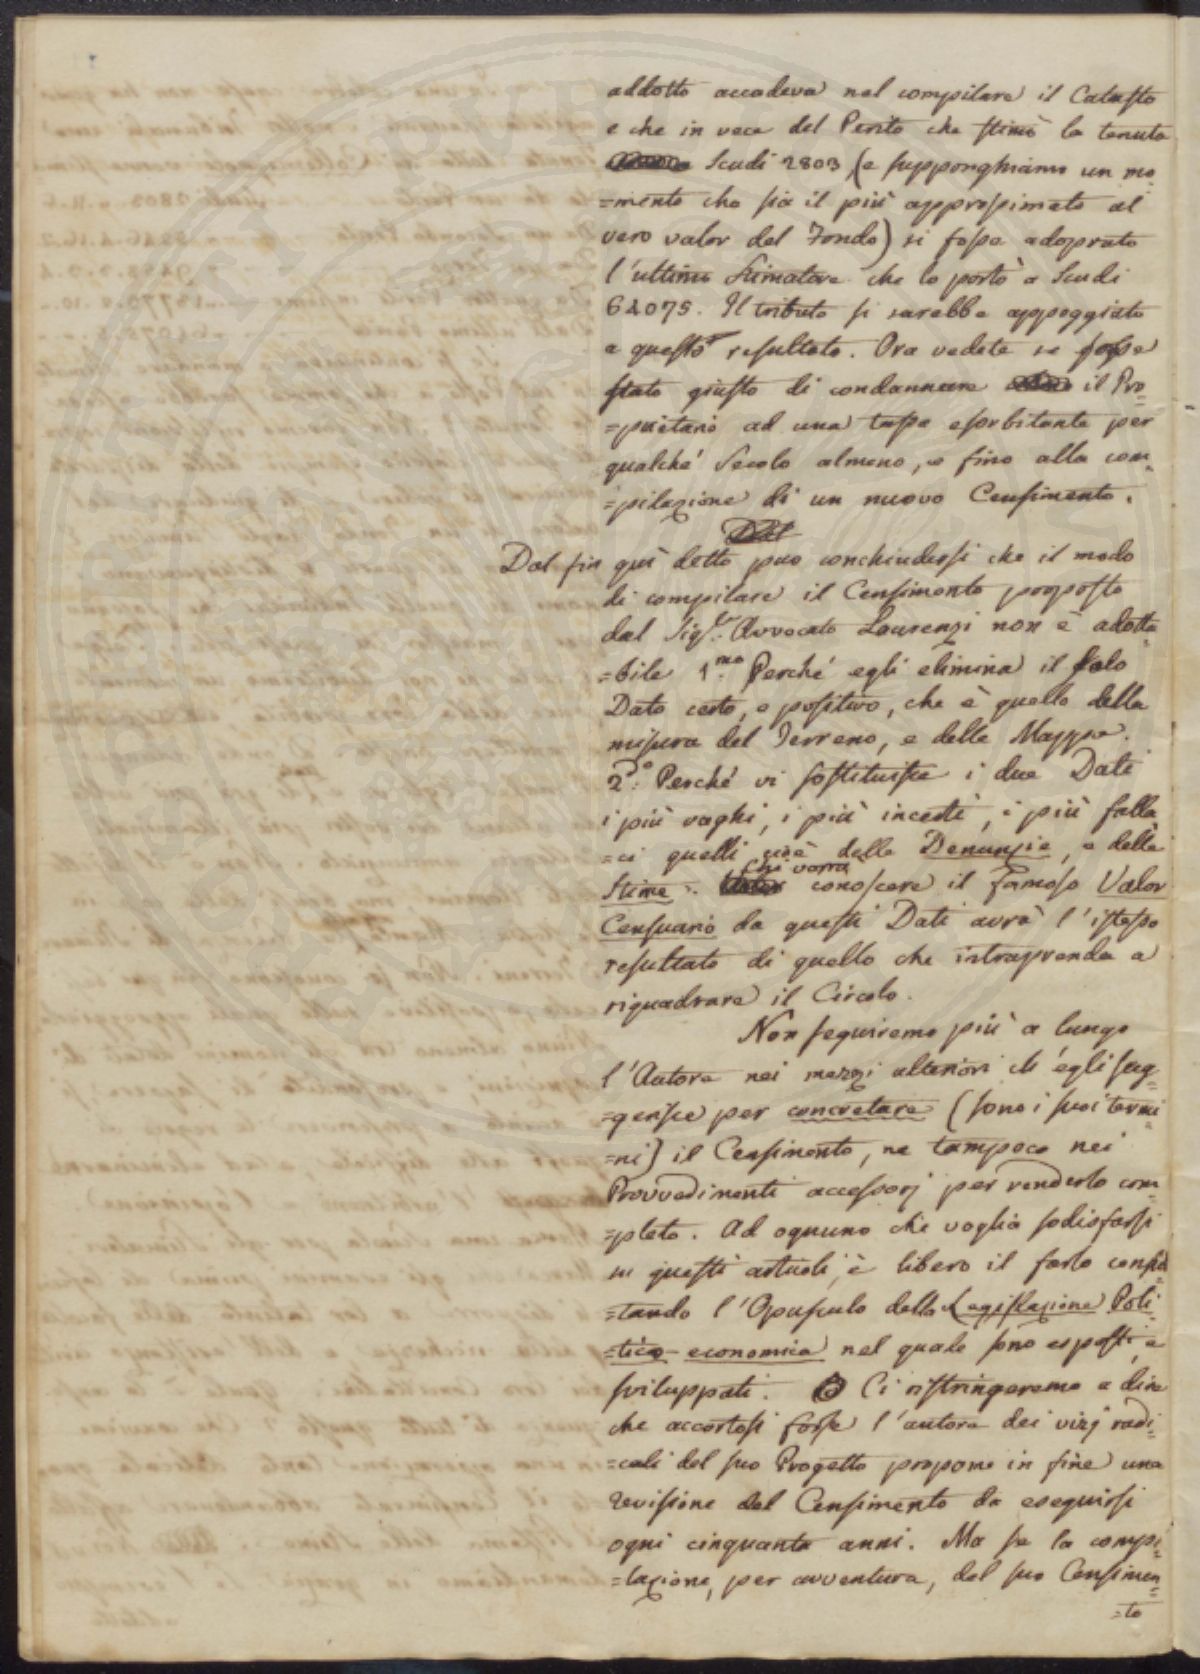 addotto accadeva nel compilare il Catasto
e che in vece del Perito che stimò la tenuta
Scudi 2803 (e supponghiamo un mo
=mento che sia il più approssimato al
vero valor del Fondo) si fosse adoprato
l'ultimo Stimatore che lo portò a Scudi
64075. Il tributo si sarebbe appoggiato
a questo resultato. Ora vedete se fosse
stato giusto di condannare il Pro=
=prietario ad una tassa esorbitante per
qualche Secolo almeno, e fino alla com=
=pilazione di un nuovo Censimento.
Dal
Dal fin quì detto può conchiudersi che il modo
di compilare il Censimento proposto
dal Sigr. Avvocato Laurenzi non è adotta=
=bile 1.mo Perché egli elimina il solo
Dato certo, e positivo, che è quello della
misura del Terreno, e delle Mappe.
2.o Perché vi sostituisce i due Dati
i più vaghi, i più incerti, i più falla
=ci quelli cioè delle Denunzie, e delle
Stime. Chi vorrà conoscere il famoso Valor
Censuario da questi Dati avrà l'istesso
resultato di quello che intraprenda a
riquadrare il Circolo.
Non seguiremo più a lungo
l'Autore nei mezzi ulteriori ch'egli sug=
=gerisce per concretare (sono i suoi termi
=ni) il Censimento, ne tampoco nei
Provvedimenti accessorj per renderlo com=
=pleto. Ad ognuno che voglia sodisfarsi
su questi articoli, è libero il farlo consul
=tando l'Opuscolo della Legislazione Poli=
=tico-economica nel quale sono esposti, e
sviluppati. Ci ristringeremo a dire
che accortosi forse l'autore dei vizj radi=
=cali del suo Progetto propone in fine una
revisione del Censimento da eseguirsi
ogni cinquanta anni. Ma se la compi=
=lazione, per avventura, del suo Censimen=
=to